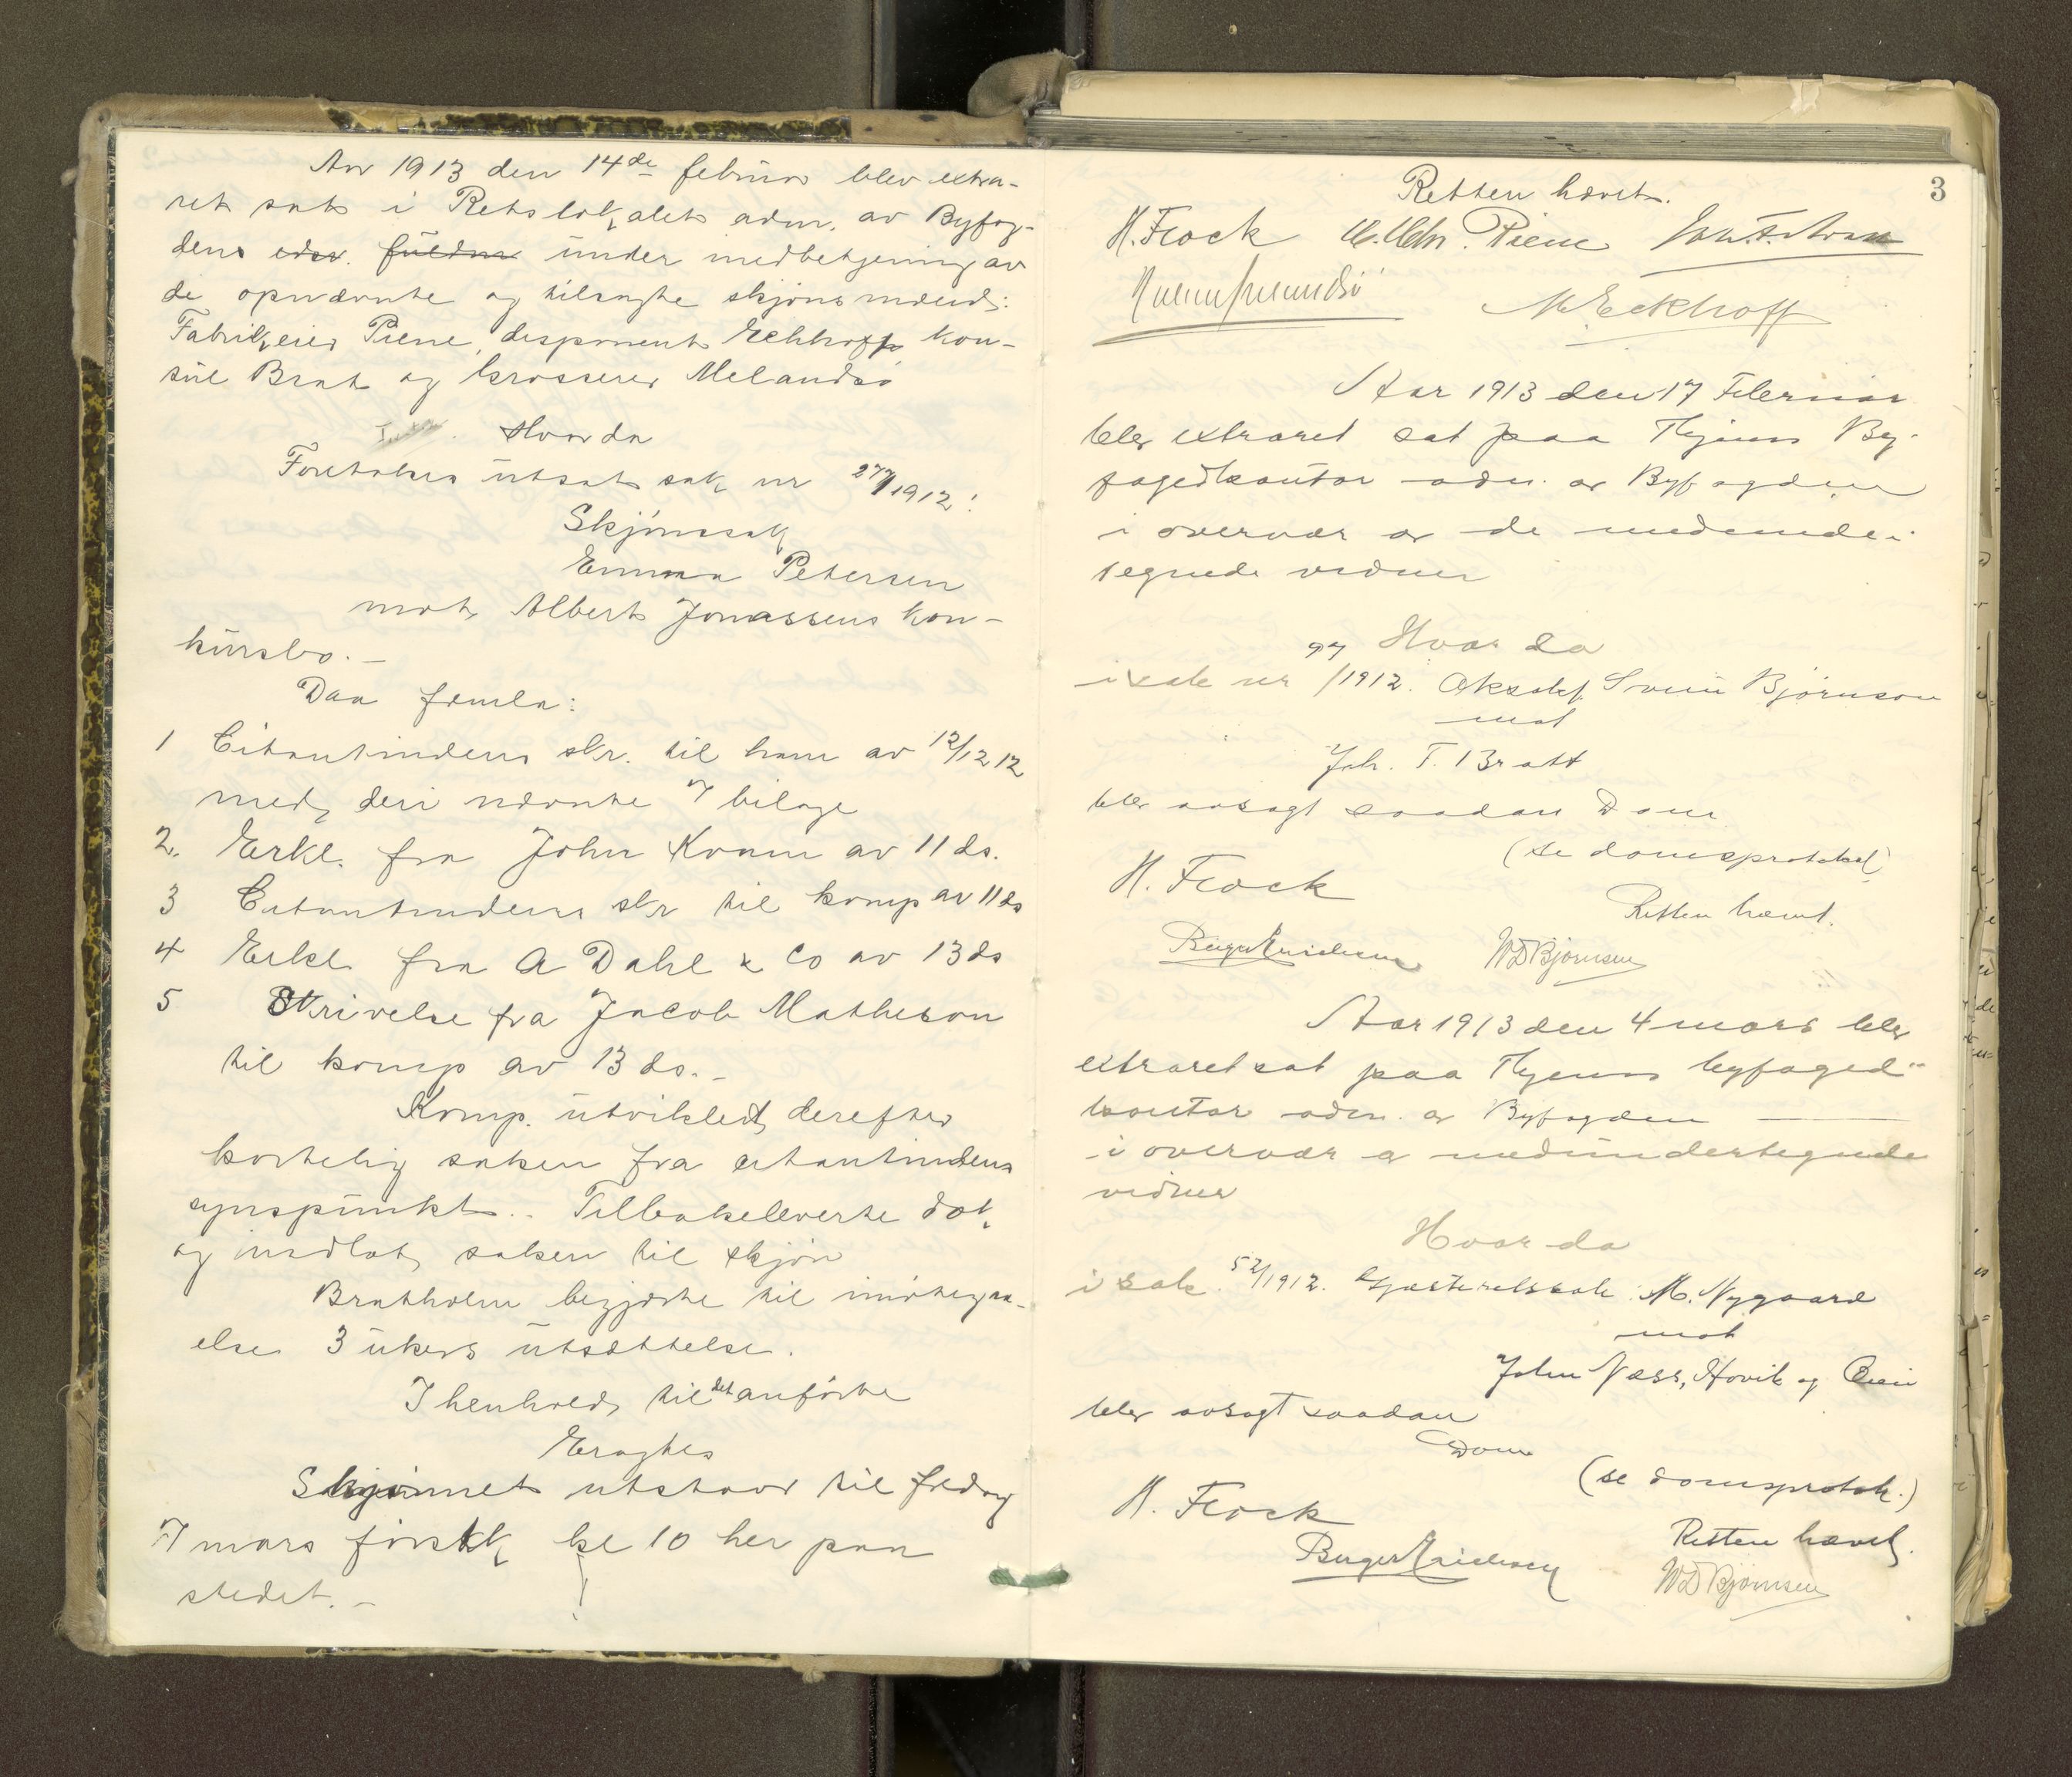 Aar 1913 den 14de februar blev extra-
ret sat i Retslokalet adm. av Byfog-
den edsv. fuldm under medbetjening av
de opnævnte og tilsagte skjønsmænd:
Fabrikeier Piene, disponent Eckhoff, kon-
sul Brat og Grosserer Melandsø
Hvorda
Foretokes utsat sak nr 27/1912:
Skjønssak
Emma Petersen
mot Albert Jonassens kon-
kursbo. -
Daa fremla:
1 Citantindens skr. til ham av 12/12 12
med deri nævnte 7 bilage
2. Erkl. fra John Kvam av 11 ds.
3 Citantindens skr til komp av 11 ds
4 Erkl. fra A Dahl & Co av 13 ds
5 Skrivelse fra Jacob Matheson
til komp av 13 ds. -
Komp. utviklet derefter
kortelig saken fra citantindens
synspunkt. - Tilbakeleverte dok.
og indlot saken til skjøn
Bratholm begjærte til imøtegaa-
else 3 ukers utsættelse.
I henhold til det anførte
Eragtes
Skjønnet utstaar til fredag
7 mars førstk kl 10 her paa
stedet. -
3
Retten hævet.
H. Flock Piene
M Eckhoff
Aar 1913 den 17 Februar
blev extraret sat paa Thjems By-
fogedkontor adm. av Byfogden
i overvær av de medunder-
tegnede vidner
Hvor da
i sak nr 97/1912. Aksels. Svein Bjørnson
mot
Joh. T. Bratt
blev avsagt saadan Dom
(se domsprotokol)
H. Flock
Retten hævet.
Birger Eriksen WD Bjørnsen
Aar 1913 den 4 mars blev
extraret sat paa Thjems byfoged-
kontor adm. av Byfogden
i overvær av medundertegnede
vidner
Hvor da
i sak. 52/1912. Gjesteretssak: M. Nygaard
mot
John Næss, Hovik og Øien
blev avsagt saadan
Dom
(se domsprotok.)
H. Flock
Retten hævet.
Birger Eriksen WD Bjørnsen